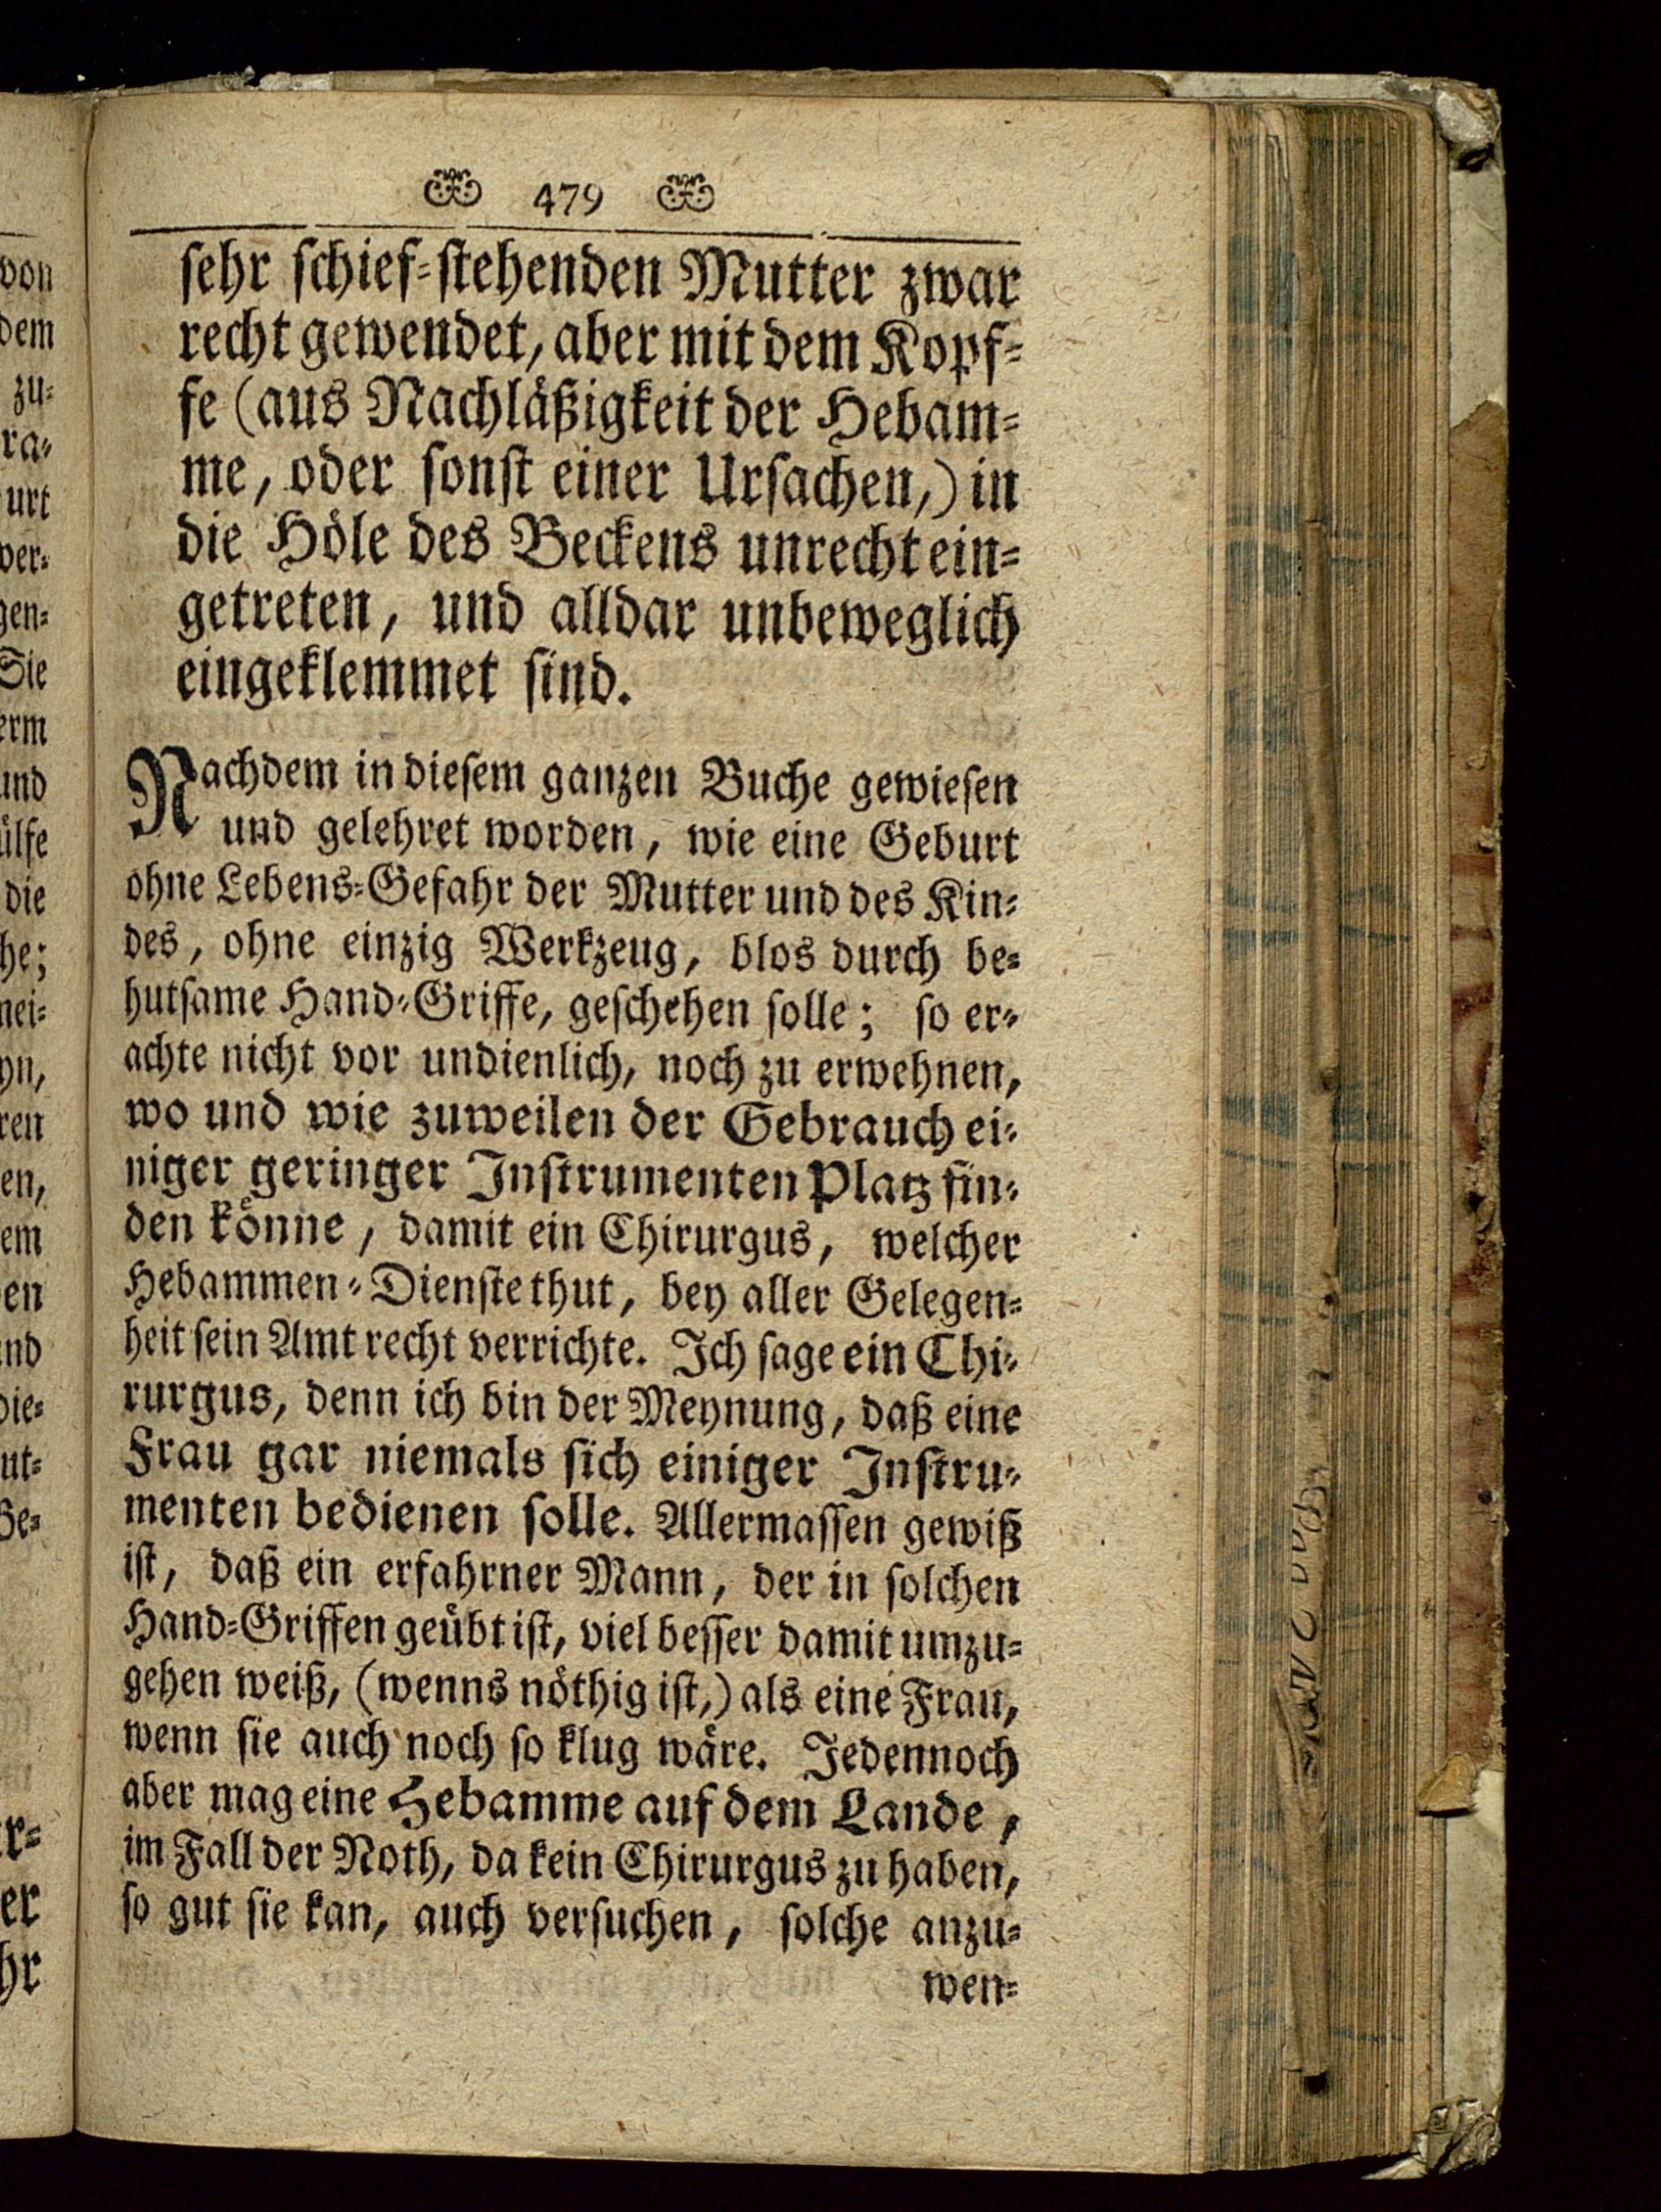 479
sehr schief-stehenden Mutter zwar
recht gewendet, aber mit dem Kopf-
fe (aus Nachläßigkeit der Hebam-
me, oder sonst einer Ursachen,) in
die Höle des Beckens unrecht ein-
getreten, und alldar unbeweglich
eingeklemmet sind.
Nachdem in diesem ganzen Buche gewiesen
und gelehret worden, wie eine Geburt
ohne Lebens-Gefahr der Mutter und des Kin-
des, ohne einzig Werkzeug, blos durch be-
hutsame Hand-Griffe, geschehen solle; so er-
achte nicht vor undienlich, noch zu erwehnen,
wo und wie zuweilen der Gebrauch ei-
niger geringer Instrumenten Platz fin-
den könne, damit ein Chirurgus, welcher
Hebammen-Dienste thut, bey aller Gelegen-
heit sein Amt recht verrichte. Ich sage ein Chi-
rurgus, denn ich bin der Meynung, daß eine
Frau gar niemals sich einiger Instru-
menten bedienen solle. Allermassen gewiß
ist, daß ein erfahrner Mann, der in solchen
Hand-Griffen geübt ist, viel besser damit umzu-
gehen weiß, (wenns nöthig ist,) als eine Frau,
wenn sie auch noch so klug wäre. Jedennoch
aber mag eine Hebamme auf dem Lande,
im Fall der Noth, da kein Chirurgus zu haben,
so gut sie kan, auch versuchen, solche anzu-
wen-